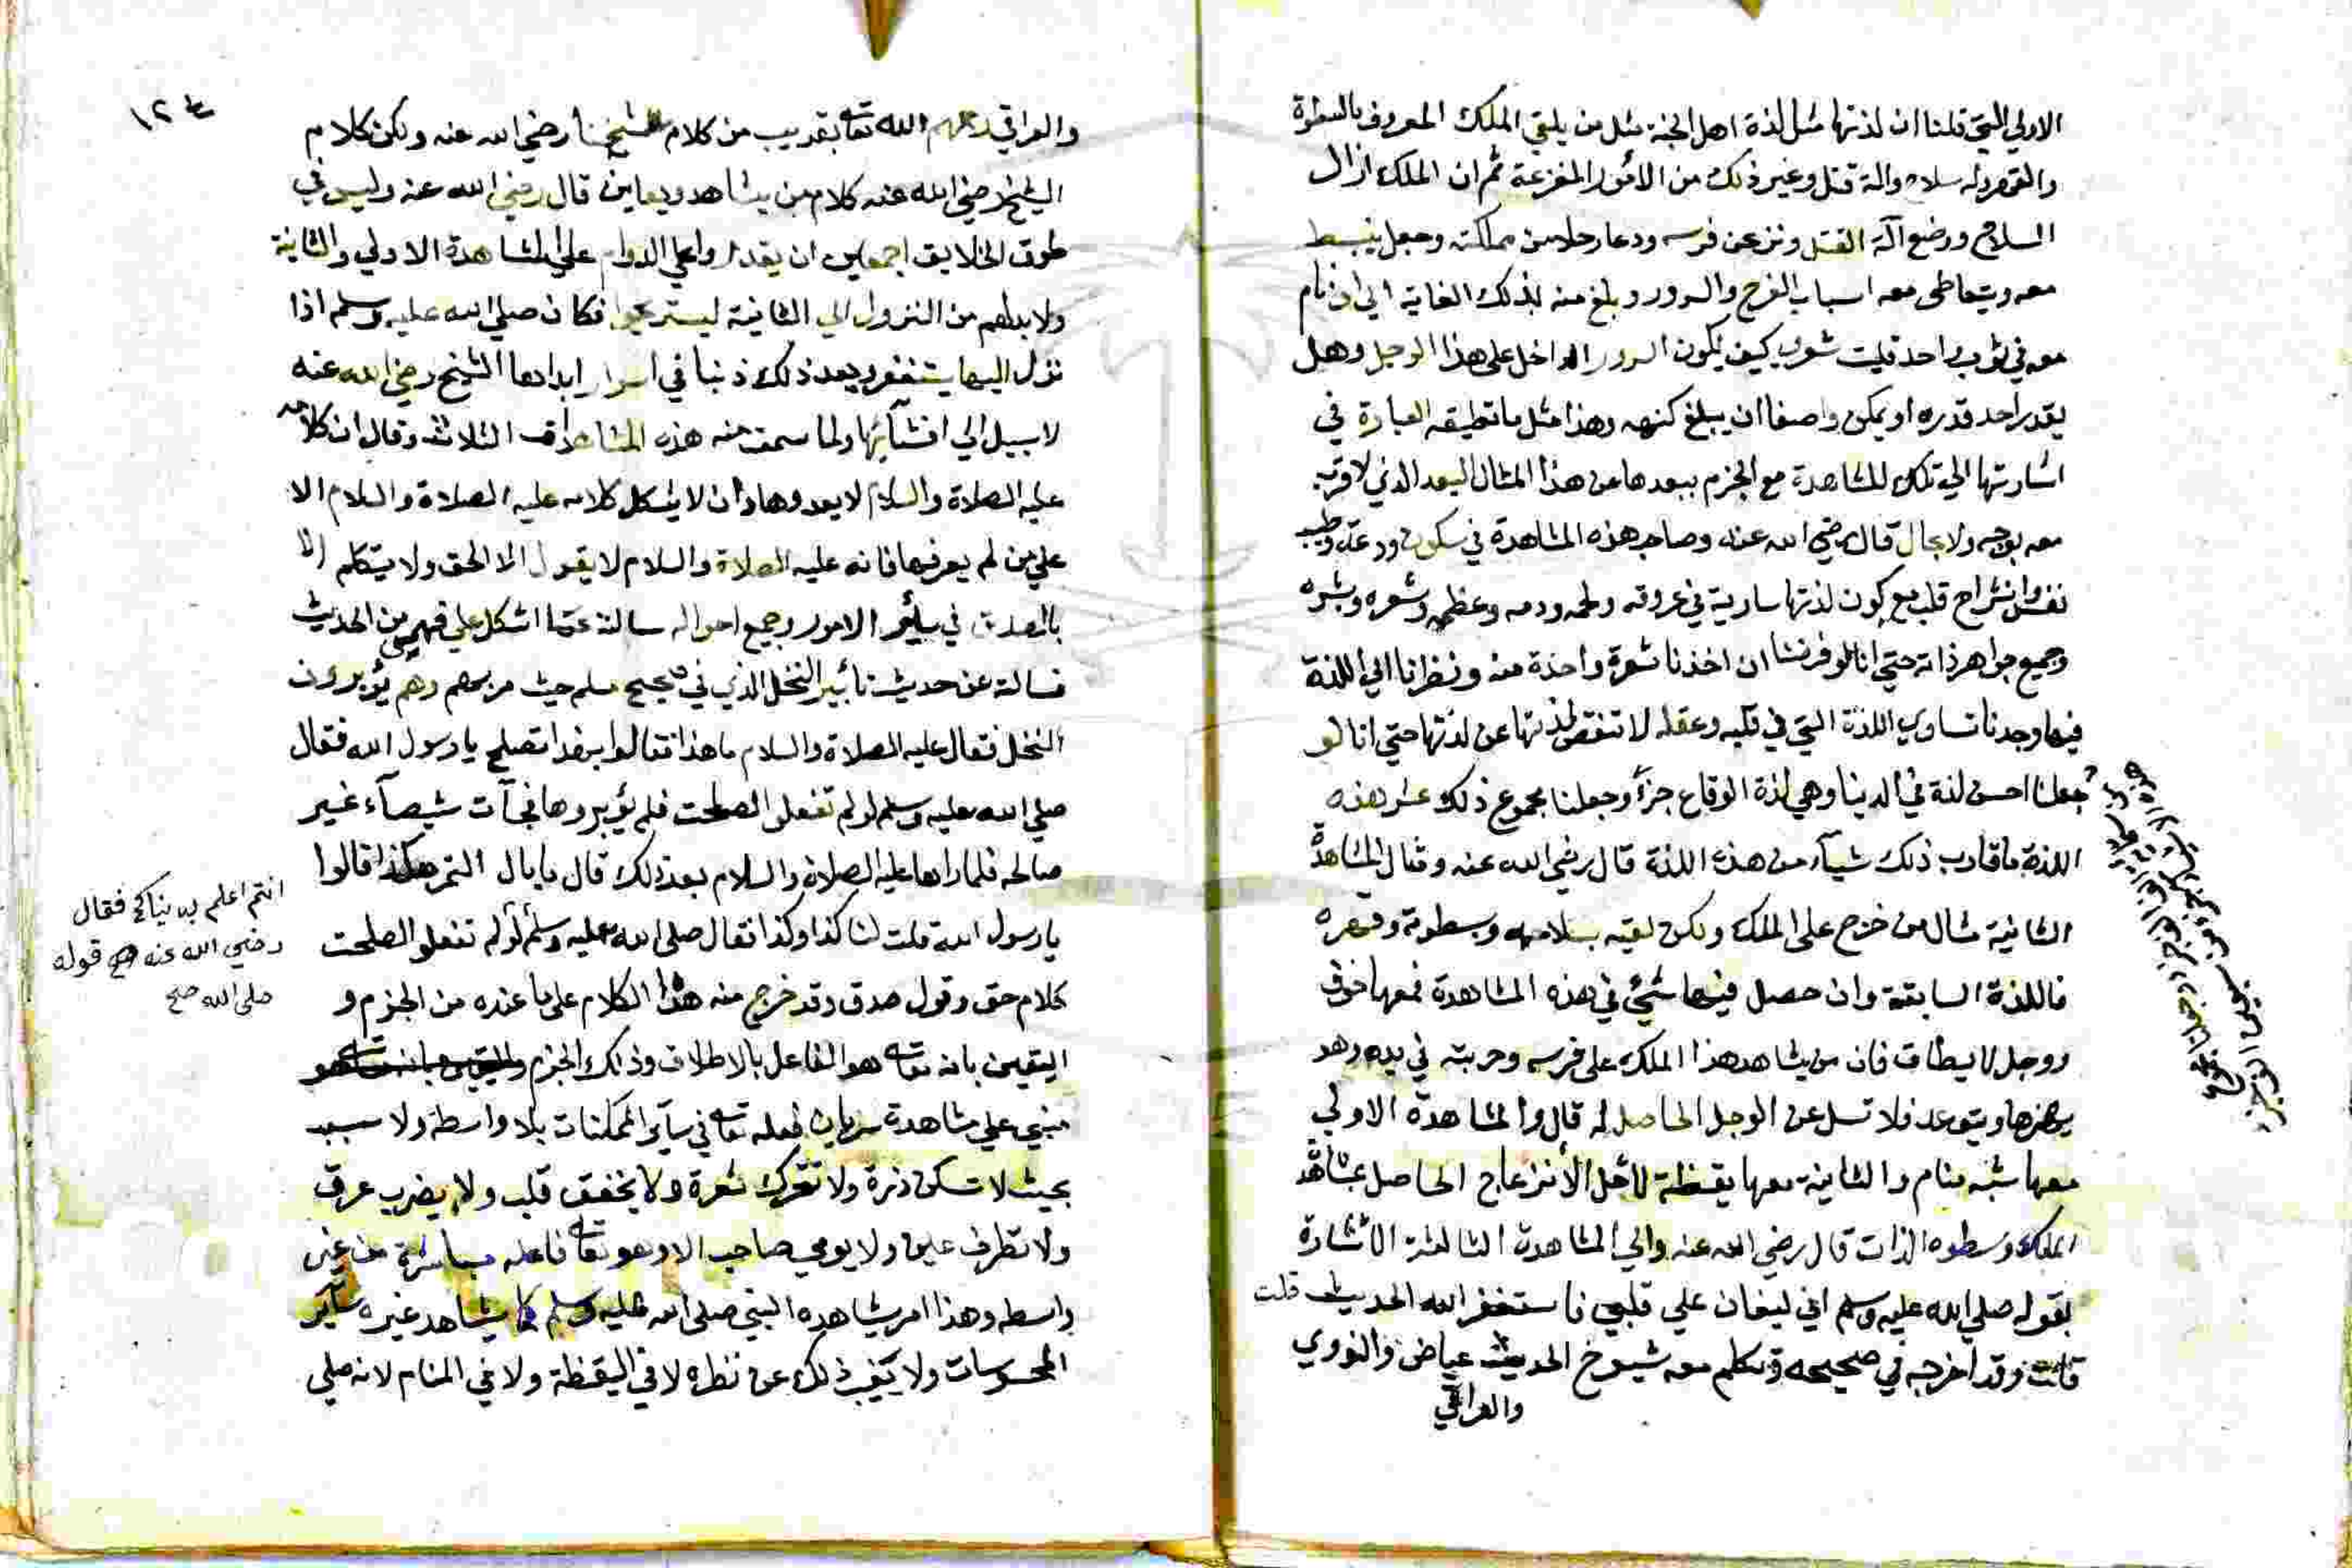 الاولي التي قلنا ان لذتها مثل لذة اهل الجنة مثل من يلقي الملك المعروف بالسطوة
والقهر وله سلاح والة قتل وغير ذلك من الأمور المفزعة ثم ان الملك ازال
السلاح ووضع آلة القتل ونزل عن فرسه ودعا رجلا من مملكته وجعل ينبسط
معه ويتعاطى معه اسباب الفرح والسرور وبلغ منه بذلك الغاية الي ان نام
معه في ثوب واحد فليت شعري كيف يكون السرور الداخل على هذا الرجل وهل
يقدر احد قدره او يمكن واصفا ان يبلغ كنهه وهذا مثل ما تطيقه العبارة في
اشارتها الي تلك المشاهدة مع الجزم ببعدها من هذا المثال البعد الذي لا قرب
معه بوجه ولا بحال قال رضي الله عنه وصاحب هذه المشاهدة في سكون ودعة وطيب
نفس وانشراح قلب مع كون لذتها سارية في عروقه ولحمه ودمه وعظمه وشعره وبشره
وجميع جواهر ذاته حتي انا لو فرضنا ان اخذنا شعرة واحدة منه ونظرنا الي اللذة
فيها وجدنا تساوي اللذة التي في قلبه وعقله لا تنقص لذتها عن لذتها حتي انا لو
جعلنا احسن لذة في الدنيا وهي لذة الوقاع جزأ وجعلنا مجموع ذلك عشر هذه
اللذة ما قارب ذلك شيأ من هذه اللذة قال رضي الله عنه ومثال المشاهدة
الثانية مثال من خرج على الملك ولكن لقيه بسلاحه وسطوته وقهره
فاللذة السابقة وان حصل فيها شيء في هذه المشاهدة فمعها خوف
ووجل لا يطاق فان من يشاهد هذا الملك على فرسه وحربته في يده وهو
يهزها ويتوعد فلا تسل عن الوجل الحاصل له قال والمشاهدة الاولي
معها شبه منام والثانية معها يقظة لاجل الأنزعاج الحاصل بمشاهدة
الملك وسطوه الذات قال رضي الله عنه والي المشاهدة الثالثة الأشارة
بقوله صلي الله عليه وسلم اني ليغان علي قلبي فاستغفر الله الحديث قلت
قلت وقد اخرجه في صحيحه وتكلم معه شيوخ الحديث عياض والنووي
والعراقي
١٢٤
والعراقي رحمهم الله تعا بقريب من كلام شيخنا رضي الله عنه ولكن كلام
الشيخ رضي الله عنه كلام من يشاهد ويعاين قال رضي الله عنه وليس في
طوق الخلايق اجمعين ان يقدروا علي الدوام علي المشاهدة الاولي والثانية
ولا بد لهم من النزول الي الثانية ليستريحوا فكان صلي الله عليه وسلم اذا
نزل اليها يستغفر ويعد ذلك ذنبا في اسرار ابداها الشيخ رضي الله عنه
لا سبيل الي افشآئها ولما سمعت منه هذه المشاهدات الثلاث وقال ان كلامه
عليه الصلاة والسلام لا يعدوها وان لا يشكل كلامه عليه الصلاة والسلام الا
علي من لم يعرفها فانه عليه الصلاة والسلام لا يقول الا الحق ولا يتكلم الا
بالصدق في سائر الامور وجميع احواله سالته عما اشكل علي فهمي من الحديث
فسالته عن حديث تأبير النخل الذي في صحيح مسلم حيث مر بهم وهم يؤبرون
النخل فقال عليه الصلاة والسلام ما هذا فقالوا بهذا تصلح يا رسول الله فقال
صلي الله عليه وسلم لو لم تفعلوا لصلحت فلم يؤبروها فجآت شيصآء غير
صالحه فلما راها عليه الصلاة والسلام بعد ذلك قال ما بال التمر هكذا قالوا
يا رسول الله قلت لنا كذا وكذا فقال صلى الله عليه وسلم لو لم تفعلو الصلحت
كلام حق وقول صدق وقد خرج منه هذا الكلام على ما عنده من الجزم و
اليقين بانه تعا هو الفاعل بالاطلاق وذلك الجزم
مبني علي مشاهدة سريان فعله تعا في سآير الممكنات بلا واسطة ولا سبب
بحيث لا تسكن ذرة ولا تتحرك شعرة ولا يخفق قلب ولا يضرب عرق
ولا تطرف عين ولا يومي حاجب الا وهو تعا فاعله مباشرة من غير
واسطه وهذا امر يشاهده النبي صلى الله عليه وسلم كما يشاهد غيره سآير
المحسوسات ولا يغيب ذلك عن نظره لا في اليقظة ولا في المنام لانه صلي
انتم اعلم بدنياكم فقال
رضي الله عنه قوله
صلى الله صح